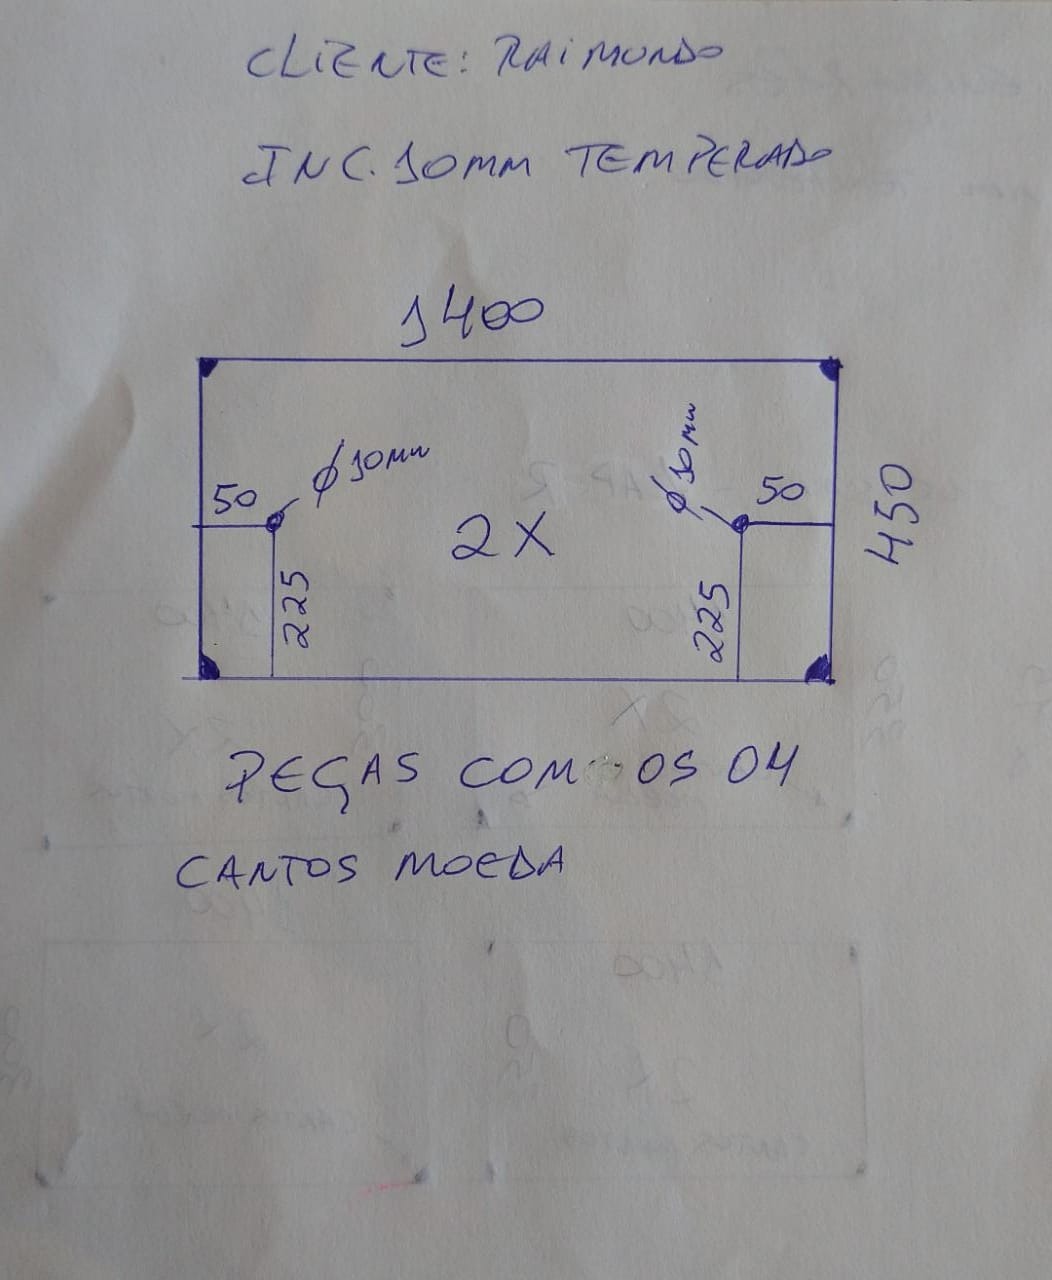 CLIENTE: RAIMUNDO
INC. 10MM TEMPERADO
1400
50
φ 10mm
2X
φ 10mm
50
450
225
225
PEÇAS COM OS 04
CANTOS MOEDA